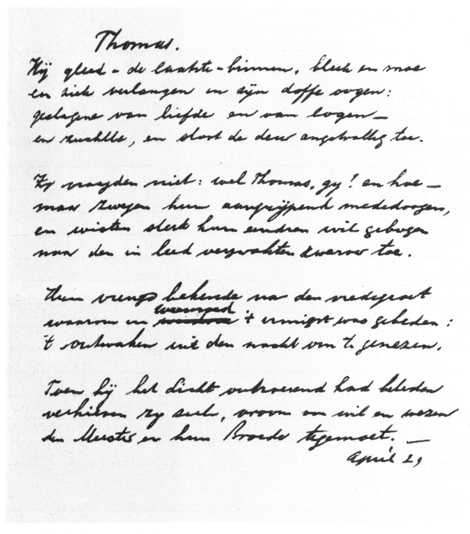 Thomas.
Hij gleed – de laatste – binnen, bleek en moe
en ziek verlangen in zijn doffe oogen:
geslagene van liefde en van logen –
en zuchtte, en sloot de deur angstvallig toe.
Zy vraagden niet: wel Thomas, gy! en hoe –
maar zwegen hun aangrijpend mededoogen,
en wisten sterk hun eindren wil gebogen
naar den in leed verzwakten zwerver toe.
Hun vreugd bekende na den vredegroet
waarom in weemoed 't innigst was gebeden:
't ontwaken uit den nacht van 't genezen.
Toen hij het Licht ontroerend had beleden
verhieven zy zich, vroom van wil en wezen
den Meester en hun Broeder tegemoet. –
April 29